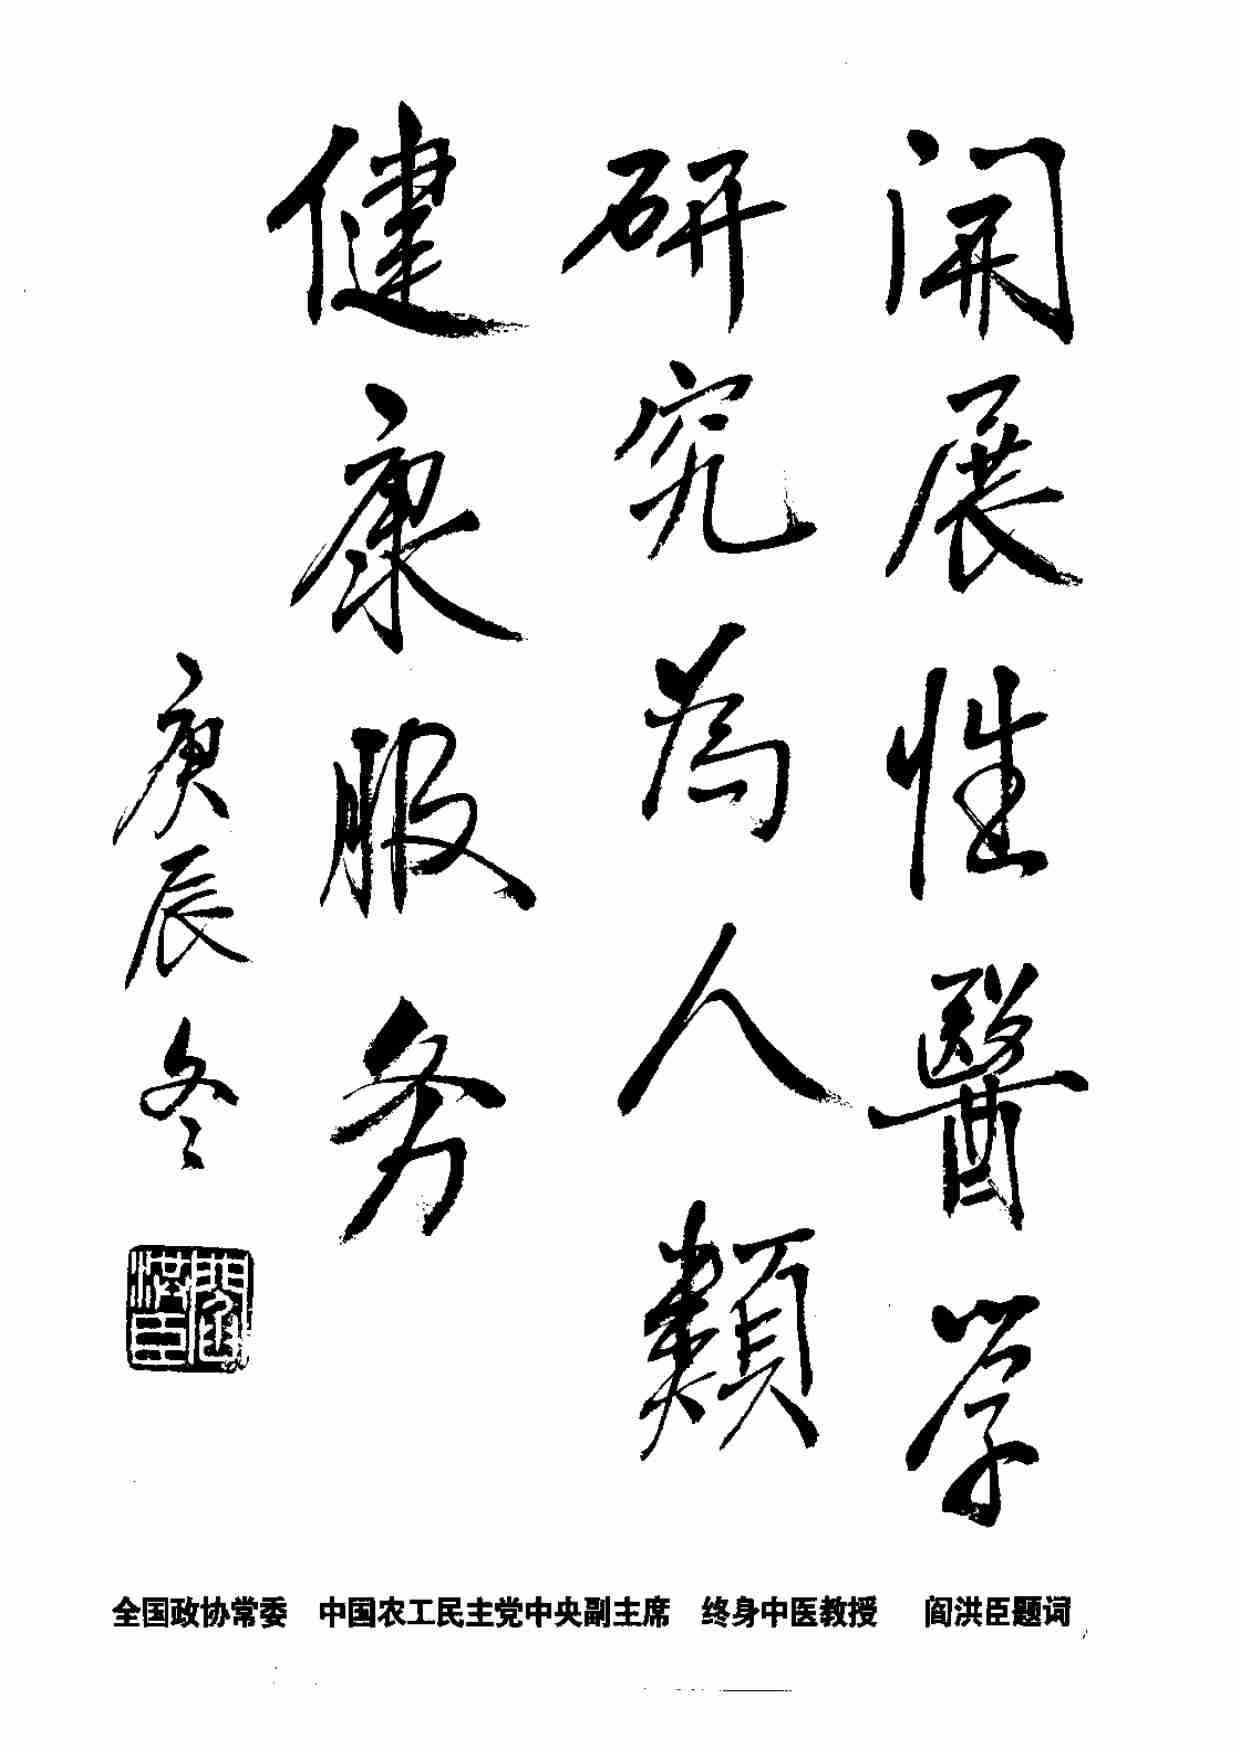 開展性醫学
研究為人類
健康服务
庚辰冬
閻洪臣
全国政协常委　中国农工民主党中央副主席　终身中医教授　阎洪臣题词